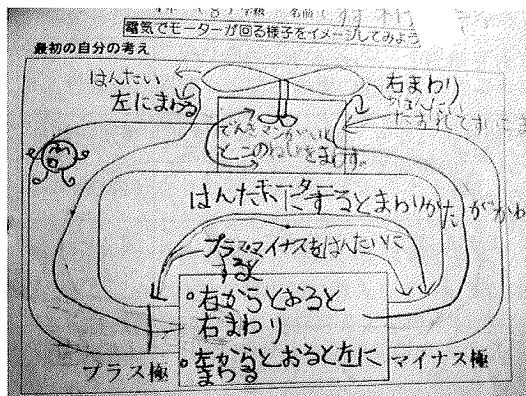 電気でモーターが回る様子をイメージしてみよう
最初の自分の考え
はんたい
左にまわる
右まわり
モーター
はんたいにするとまわりかたがかわ
プラスマイナスをはんたいに
すると
・右からとおると
右まわり
・左からとおると左に
まわる
プラス極
マイナス極